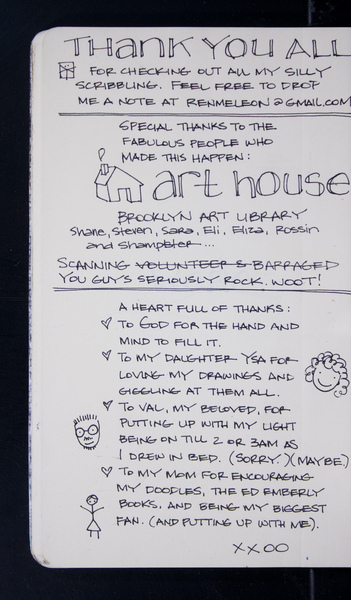 THANK YOU ALL
FOR CHECKING OUT ALL MY SILLY
SCRIBBLING. FEEL FREE TO DROP
ME A NOTE AT RENMELEON@GMAIL.COM
SPECIAL THANKS TO THE
FABULOUS PEOPLE WHO
MADE THIS HAPPEN:
art house
BROOKLYN ART LIBRARY
Shane, Steven, Sara, Eli, Eliza, Rossin
and Shampbler...
SCANNING VOLUNTEER S BARRAGED
YOU GUYS SERIOUSLY ROCK. WOOT!
A HEART FULL OF THANKS:
TO GOD FOR THE HAND AND
MIND TO FILL IT.
TO MY DAUGHTER YSA FOR
LOVING MY DRAWINGS AND
GIGGLING AT THEM ALL.
TO VAL, MY BELOVED, FOR
PUTTING UP WITH MY LIGHT
BEING ON TILL 2 OR 3AM AS
I DREW IN BED. (SORRY.)(MAYBE.)
TO MY MOM FOR ENCOURAGING
MY DOODLES, THE ED EMBERLY
BOOKS, AND BEING MY BIGGEST
FAN. (AND PUTTING UP WITH ME).
XXOO